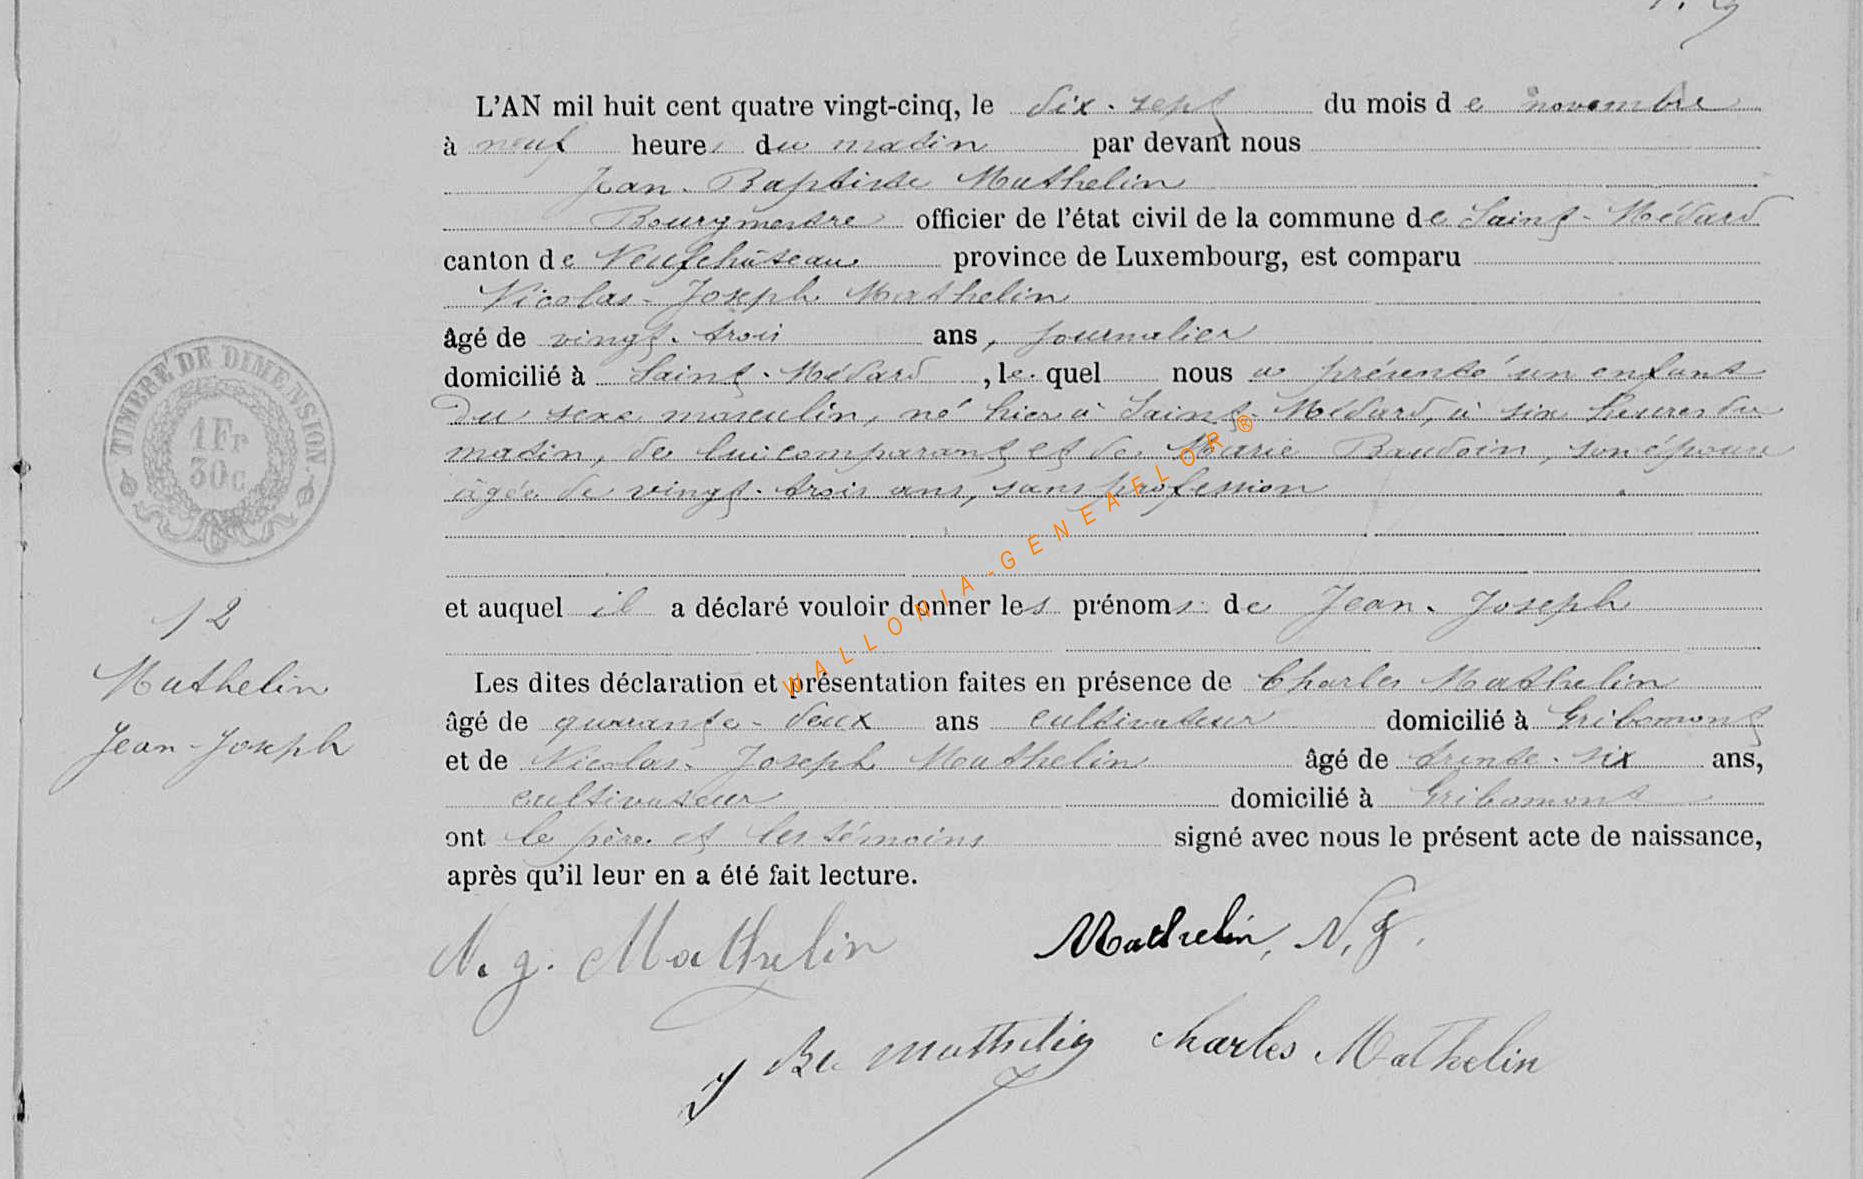 L'AN mil huit cent quatre vingt-cinq, le dix-sept du mois de novembre
à neuf heures du matin par devant nous
Jean-Baptiste Mathelin
Bourgmestre officier de l'état civil de la commune de Saint-Médard
canton de Neufchâteau province de Luxembourg, est comparu
Nicolas-Joseph Mathelin
âgé de vingt-trois ans, journalier
domicilié à Saint-Médard, lequel nous a présenté un enfant
du sexe masculin, né hier à Saint-Médard, à six heures du
matin, de lui comparant et de Marie Baudoin, son épouse
âgée de vingt-trois ans, sans profession
et auquel il a déclaré vouloir donner les prénoms de Jean-Joseph
Les dites déclaration et présentation faites en présence de Charles Mathelin
âgé de quarante-deux ans cultivateur domicilié à Gribomont
et de Nicolas-Joseph Mathelin âgé de trente-six ans,
cultivateur domicilié à Gribomont
ont le père et les témoins signé avec nous le présent acte de naissance,
après qu'il leur en a été fait lecture.
N. J. Mathelin Mathelin, N. J.
J Bte Mathelin Charles Mathelin
TIMBRE DE DIMENSION
1 Fr
30c
12
Mathelin
Jean-Joseph
WALLONIA-GENEAELOR®